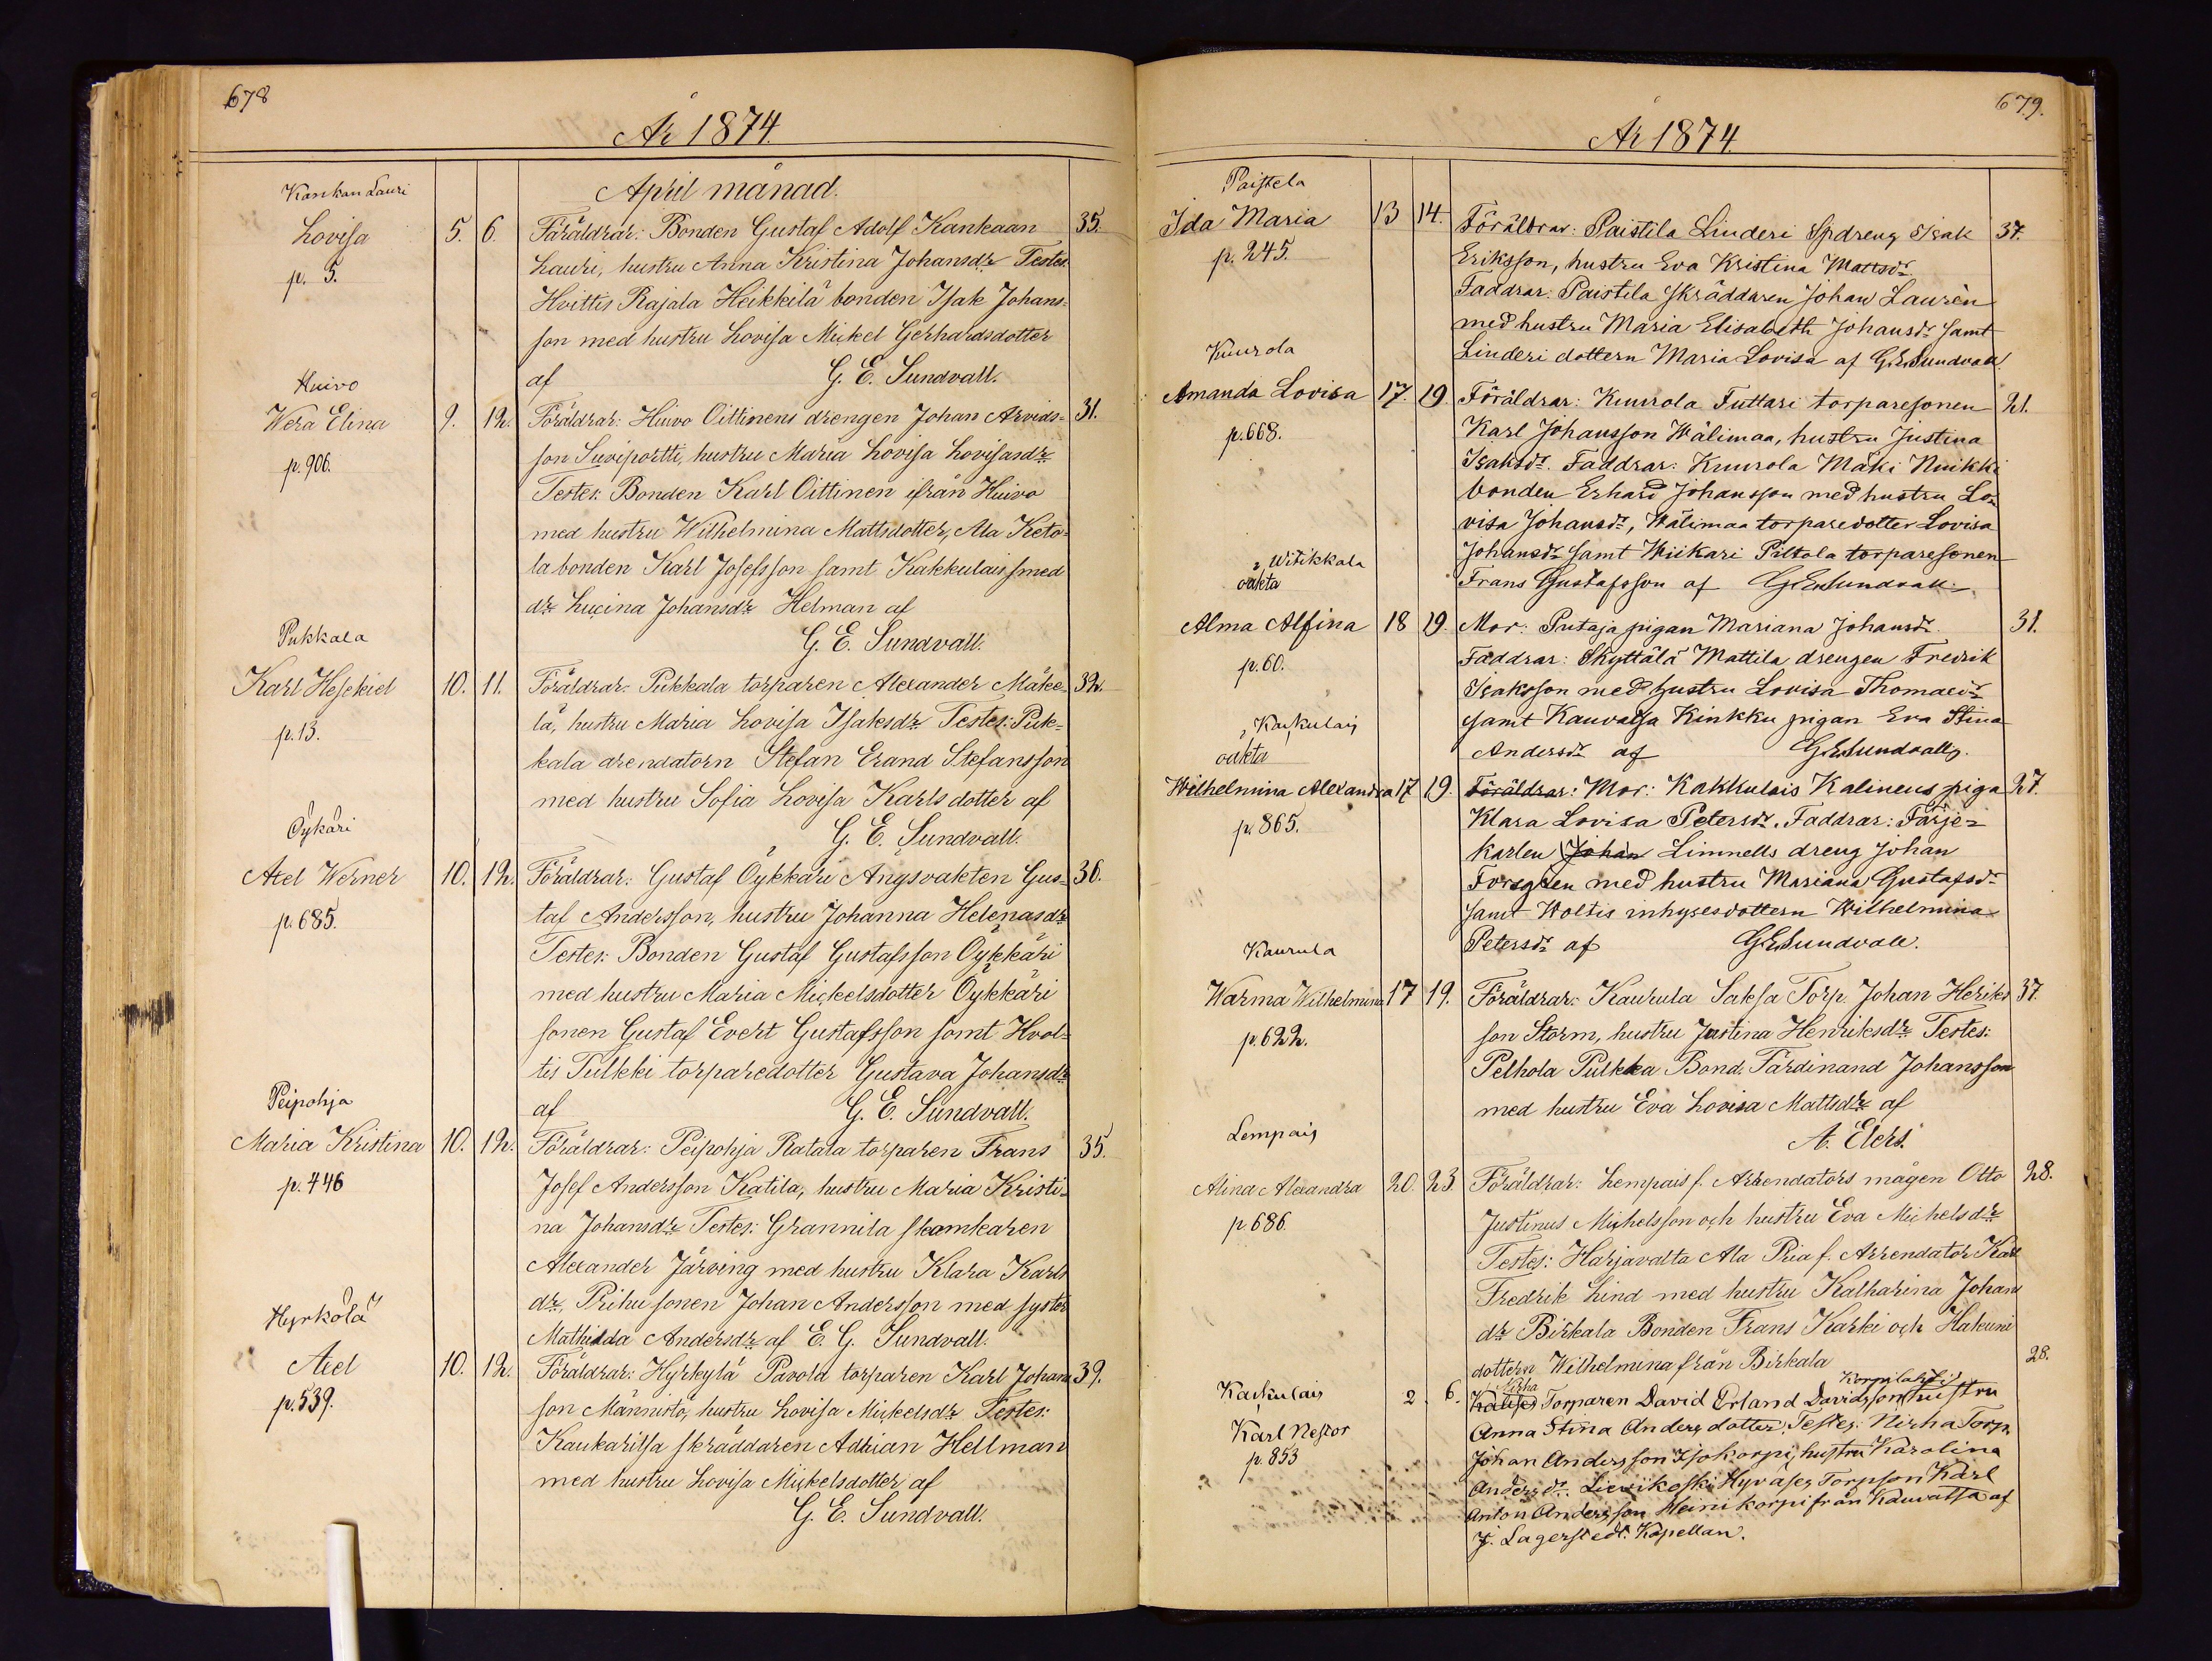 678
År 1874.
April månad.
Kankan Lauri
Lovisa 5. 6. Föräldrar: Bonden Gustaf Adolf Kankaan 35.
p. 5. Lauri, hustru Anna Kristina Johansdr Testes
Hvittis Rajala Heikkilä bonden Isak Johans=
son med hustru Lovisa Mickel Gerhardsdotter
af G. E. Sundvall.
Huivo
Wera Elina 9. 12. Föräldrar: Huivo Oittinens drengen Johan Arvids= 31.
p. 906. son Suviportti, hustru Maria Lovisa Lovisasdr
Testes: Bonden Karl Oittinen ifrån Huivo
med hustru Wilhelmina Mattsdotter, Ala Keto=
la bonden Karl Josefsson samt Kakkulais smed
dr Lucina Johansdr Helman af
G. E. Sundvall.
Pukkala
Karl Hesekiel 10. 11. Föräldrar: Pukkala torparen Alexander Mäke= 32.
p. 13. lä, hustru Maria Lovisa Isaksdr Testes: Puk=
kala arendatorn Stefan Erand Stefansson
med hustru Sofia Lovisa Karls dotter af
G. E. Sundvall.
Öykäri
Axel Werner 10. 12. Föräldrar: Gustaf Öykkäri Angsvakten Gus= 36.
p. 685. taf Andersson, hustru Johanna Helenasdr
Testes: Bonden Gustaf Gustafsson Öykkäri
med hustru Maria Mickelsdotter Öykkäri
sonen Gustaf Evert Gustafsson samt Hvol=
tis Pulkki torparedotter Gustava Johansdr
af G. E. Sundvall.
Peipohja
Maria Kristina 10. 12. Föräldrar: Peipohja Ratala torparen Frans 35.
p. 446 Josef Andersson Katila, hustru Maria Kristi=
na Johansdr Testes: Grannila skamkaren
Alexander Järving med hustru Klara Karls
dr. Prihu sonen Johan Andersson med syster
Mathilda Andersdr af E. G. Sundvall.
Hyrkölä
Axel 10. 12. Föräldrar: Hyrkylä Pavola torparen Karl Johans 39.
p. 539. son Männistö, hustru Lovisa Mickelsdr Testes:
Kaukaritsa skräddaren Adrian Hellman
med hustru Lovisa Mickelsdotter af
G. E. Sundvall.
679.
År 1874
Paistela
Ida Maria 13 14. Föräldrar: Paistila Linderi Spdreng Isak 37.
p. 245. Eriksson, hustru Eva Kristina Mattsdr
Faddrar: Paistila skräddaren Johan Laurèn
med hustru Maria Elisabeth Johansdr samt
Linderi dottern Maria Lovisa af G E Sundvall.
Kuurola
Amanda Lovisa 17. 19. Föräldrar: Kuurola Tuttari torparesonen 21.
p. 668. Karl Johansson Wälimaa, hustru Justina
Isaksdr. Faddrar: Kuurola Mäki Nuikki
bonden Erhard Johansson med hustru Lo=
visa Johansdr, Wälimaa torparedotter Lovisa
Johansdr samt Wiikari Piltola torparesonen
Frans Gustafsson af G E Sundvall.
Witikkala
oäkta
Alma Alfina 18 19. Mor: Putaja pigan Mariana Johansdr. 31.
p. 60. Faddrar: Skyttälä Mattila drengen Fredrik
Isaksson med hustru Lovisa Thomasdr
samt Kauvatsa Kinkku pigan Eva Stina
Andersdr af G E Sundvall.
Kakkulais
oäkta
Wilhelmina Alexandra 17 19. Föräldrar: Mor: Kakkulais Kalinens piga 27.
p. 865. Klara Lovisa Petersdr. Faddrar: Färje=
karlen Johan Limnells dreng Johan
Forsgren med hustru Mariana Gustafsdr
samt Woltis inhysesdottern Wilhelmina
Petersdr af G E Sundvall.
Kaurula
Warma Wilhelmina 17 19. Föräldrar: Kaurula Saksa Torp. Johan Heriks 37.
p. 622. son Storm, hustru Justina Henriksdr Testes:
Pelhola Pulkka Bond. Färdinand Johansson
med hustru Eva Lovisa Mattsdr af
A. Elers.
Lempais
Alina Alexandra 20. 23. Föräldrar: Lempais f. Arrendators mågen Otto 28.
p 686. Justinus Michelsson och hustru Eva Michelsdr
Testes: Harjavalta Ala Pria f. Arrendator Karl
Fredrik Lind med hustru Katharina Johans
dr Birkala Bonden Frans Karki och Hakuni
dottern Wilhelmina från Birkala
Kakkulais 2. 6. Nirha Torparen David Erland Davidsson Korpilahti hustru 28.
Karl Nestor Anna Stina Anders dotter; Testes: Nirha Torp.
p. 853 Johan Andersson Isokorpi, hustru Karolina
Andersdr. Lievikoski Hyväses Torpson Karl
Anton Andersson Heinikorpi från Kauvatsa af
J. Lagerstedt. Kapellan.